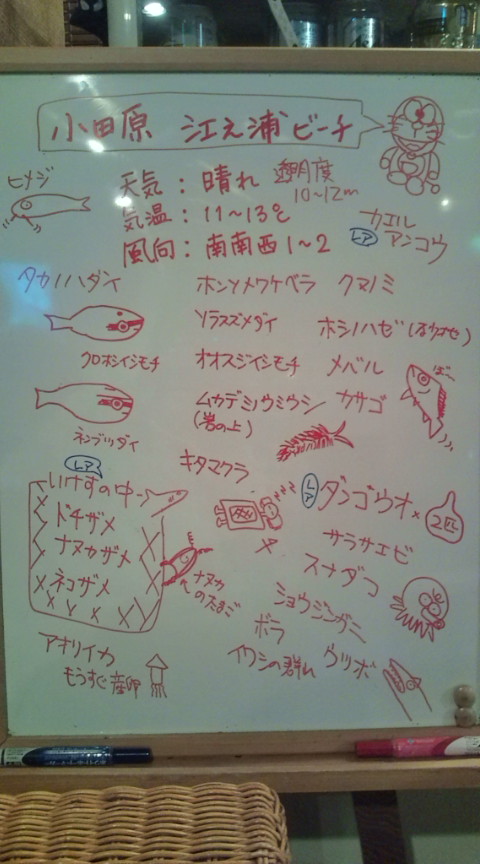 小田原 江之浦ビーチ
ヒメジ
天気：晴れ 透明度
10～12m
気温：11～13℃
風向：南南西1～2
カエル
レア アンコウ
タカノハダイ ホンソメワケベラ クマノミ
ソラスズメダイ ホシノハゼ
クロホシイシモチ オオスジイシモチ メバル
ムカデミノウミウシ カサゴ
(岩の上)
ネンブツダイ
キタマクラ
レア
いけすの中
ドチザメ
ナヌカザメ
ネコザメ
ナヌカ
のたまご
zzz
レア ダンゴウオ× 2匹
サラサエビ
スナダコ
ショウジンガニ
ボラ
イワシの群れ ウツボ
アオリイカ
もうすぐ産卵